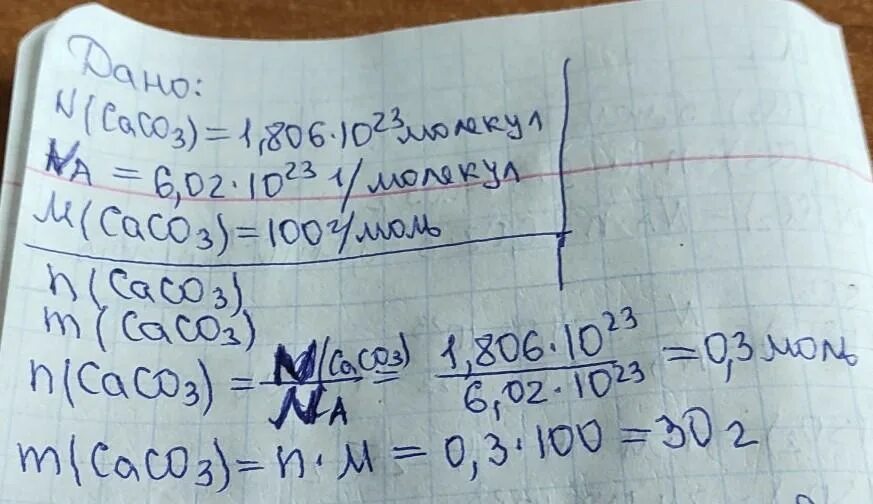 Дано:
N(CaCO₃) = 1,806·10²³ молекул
N_A = 6,02·10²³ 1/молекул
M(CaCO₃) = 100 г/моль
n(CaCO₃)
m(CaCO₃)
n(CaCO₃) = N(CaCO₃)/N_A = 1,806·10²³/6,02·10²³ = 0,3 моль
m(CaCO₃) = n·M = 0,3·100 = 30 г